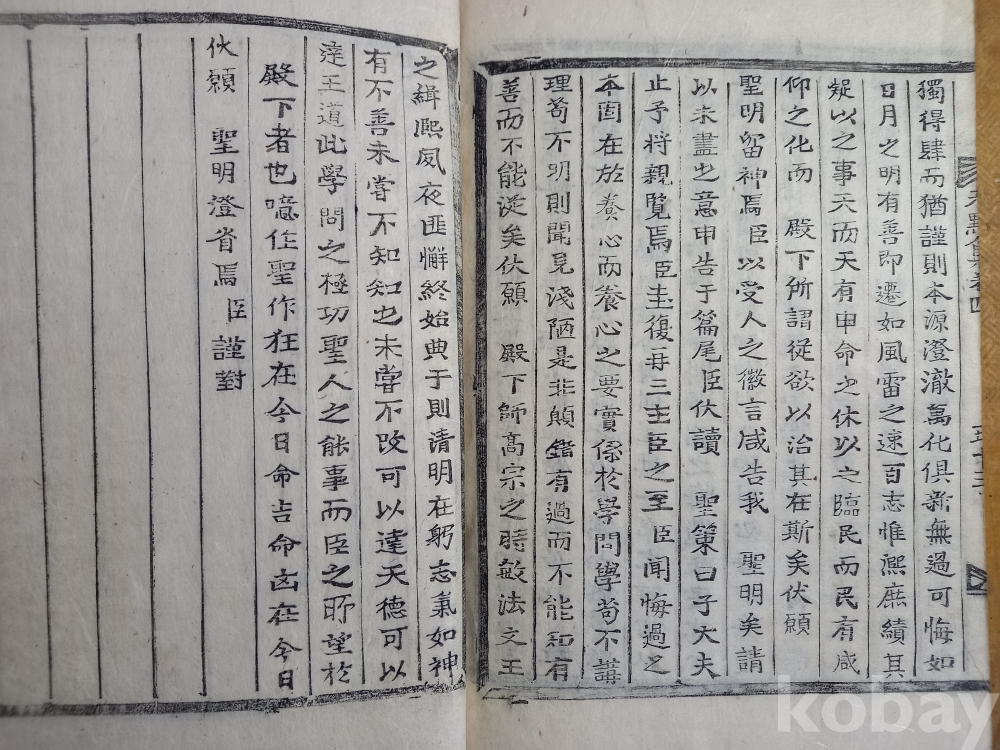 獨得肆而猶謹則本源澄澈萬化俱新無過可悔如
日月之明有善卽遷如風雷之速百志惟凞庶績其
凝以之事天而天有申命之休以之臨民而民有咸
仰之化而 殿下所謂從欲以治其在斯矣伏願
聖明留神焉臣以受人之徽言咸告我 聖明矣請
以未盡之意申告于篇尾臣伏讀 聖策曰子大夫
止予將親覧焉臣圭復再三主臣之至 臣聞悔過之
本固在於養心而養心之要實係於學問學苟不講
理苟不明則聞見淺陋是非顚錯有過而不能知有
善而不能從矣伏願 殿下師高宗之時敏法文王
之緝熙夙夜匪懈終始典于則清明在躬志氣如神
有不善未嘗不知知之未嘗不改可以達天德可以
達王道此學問之極功聖人之能事而臣之所望於
殿下者也噫作聖作狂在今日命吉命凶在今日
伏願 聖明澄省焉臣謹對
集卷四
五十三
kobay